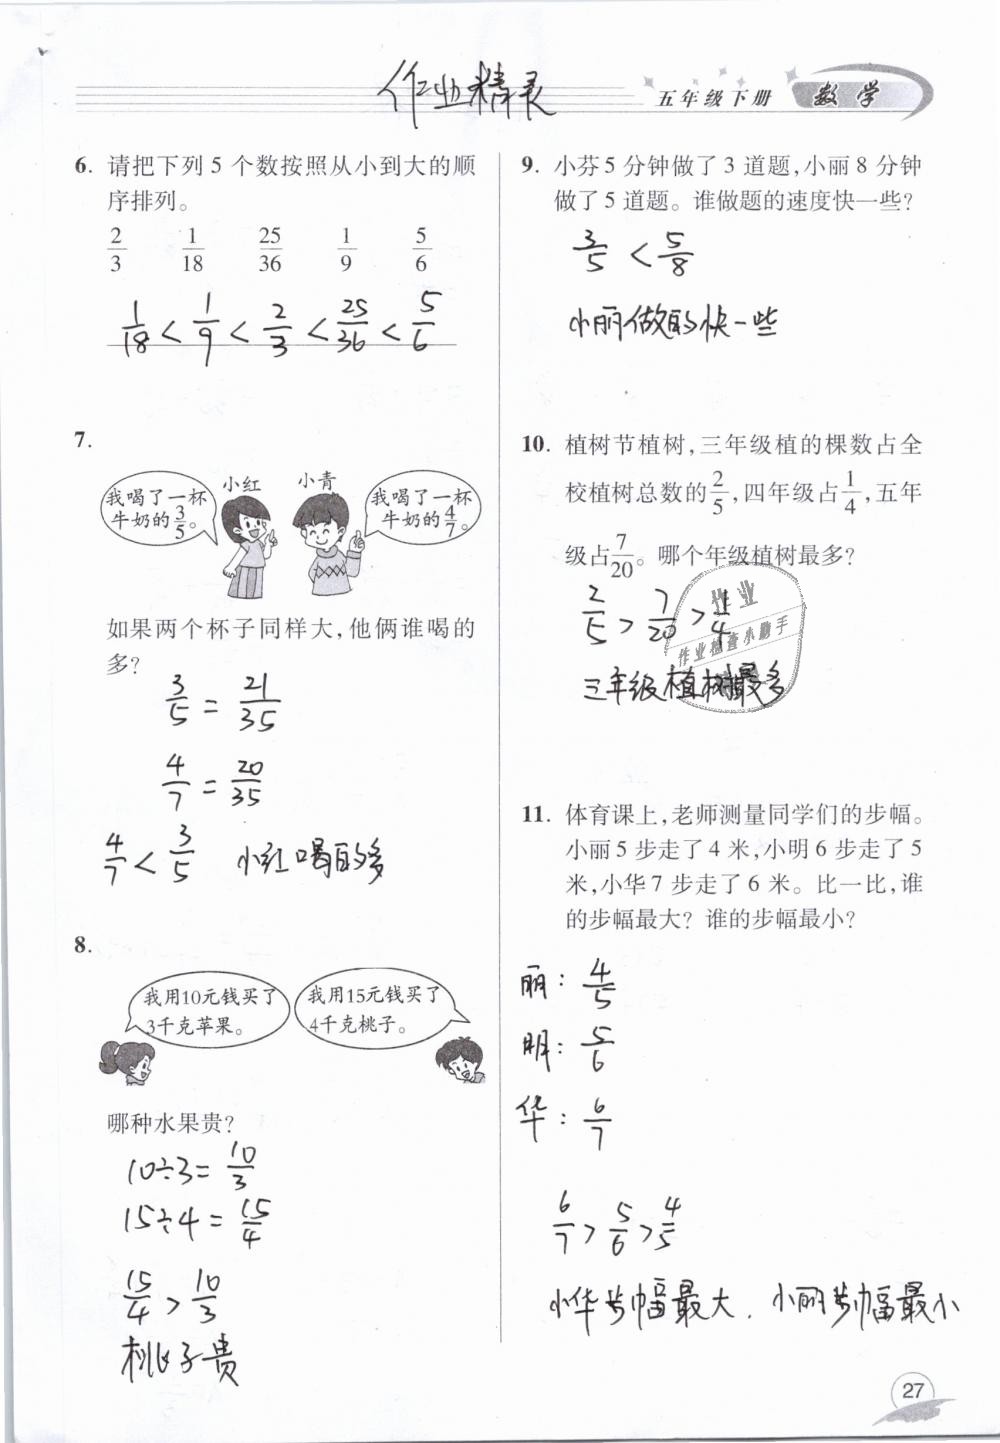 作业精灵
五年级下册 数学
6. 请把下列 5 个数按照从小到大的顺
序排列。
2/3 1/18 25/36 1/9 5/6
1/18 < 1/9 < 2/3 < 25/36 < 5/6
7.
小红 小青
我喝了一杯
牛奶的3/5。
我喝了一杯
牛奶的4/7。
如果两个杯子同样大,他俩谁喝的
多?
3/5 = 21/35
4/7 = 20/35
4/7 < 3/5 小红喝的多
8.
我用10元钱买了
3千克苹果。
我用15元钱买了
4千克桃子。
哪种水果贵?
10÷3=10/3
15÷4=15/4
15/4 > 10/3
桃子贵
9. 小芬 5 分钟做了 3 道题,小丽 8 分钟
做了 5 道题。谁做题的速度快一些?
3/5 < 5/8
小丽做的快一些
10. 植树节植树,三年级植的棵数占全
校植树总数的2/5,四年级占1/4,五年
级占7/20。哪个年级植树最多?
2/5 > 7/20 > 1/4
三年级植树最多
作业
作业检查小助手
11. 体育课上,老师测量同学们的步幅。
小丽 5 步走了 4 米,小明 6 步走了 5
米,小华 7 步走了 6 米。比一比,谁
的步幅最大? 谁的步幅最小?
丽: 4/5
明: 5/6
华: 6/7
6/7 > 5/6 > 4/5
小华步幅最大. 小丽步幅最小
27